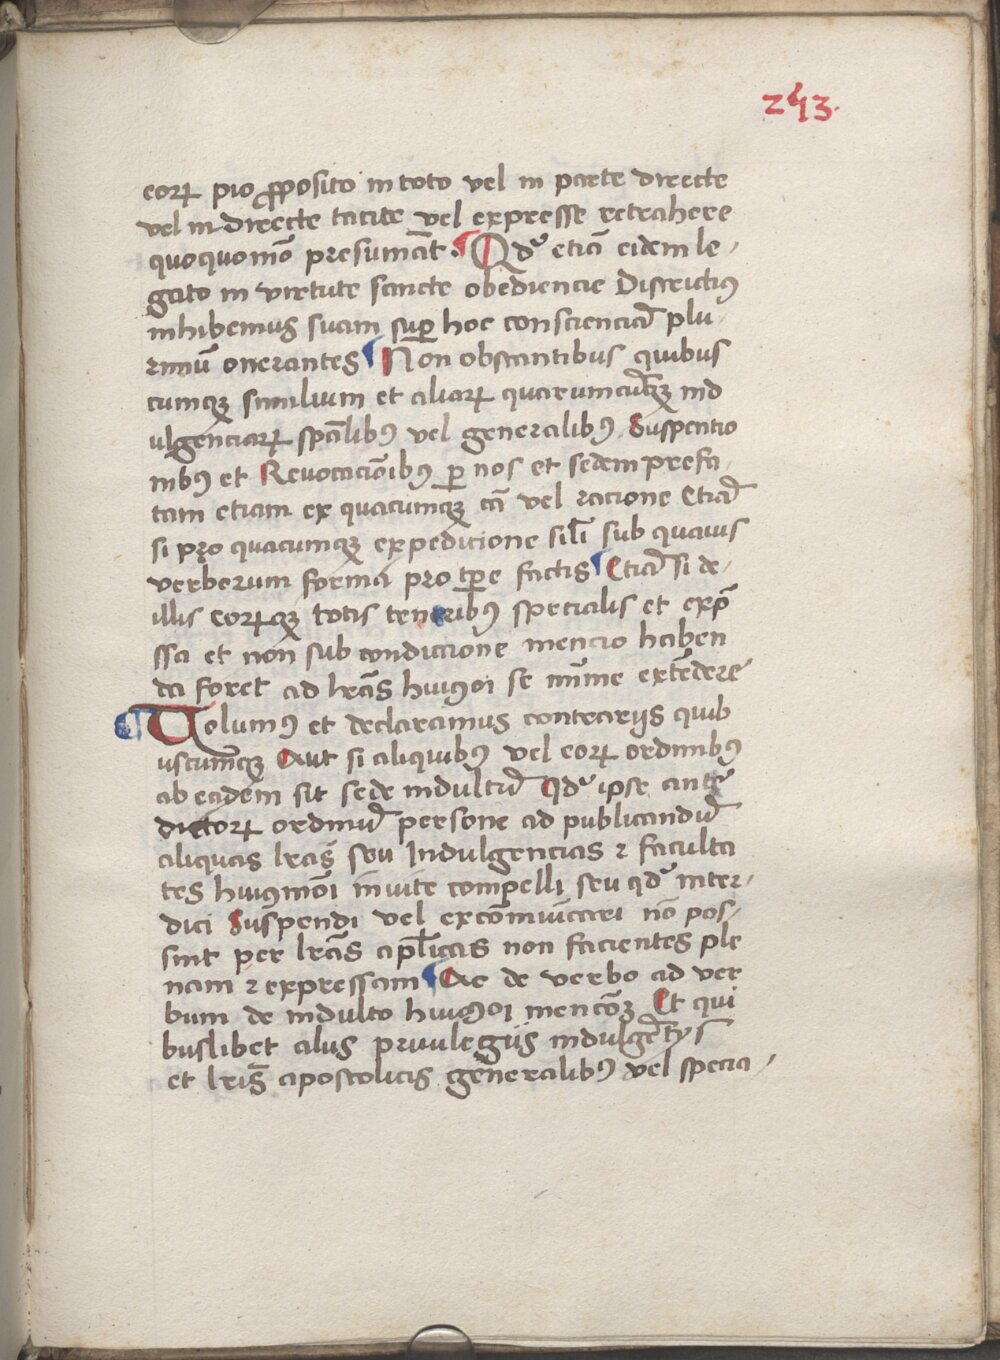 243.
eorꝝ pio ꝓposito in toto vel in parte directe
vel indirecte tacite vel expresse retrahere
quoquomō presumāt. ¶ Qd' etiā eidem le-
gato in virtute sancte obediencie Districtiꝰ
inhibemus suam suꝑ hoc conscienciā plu-
rimū onerantes ¶ Non obstantibus quibus
cumqꝫ similium et aliarꝝ quarumcūqꝫ ind
ulgenciarꝝ spālibꝰ vel generalibꝰ Suspentio
nibꝰ et Revocaciōibꝰ ꝑ nos et sedem prefa-
tam etiam ex quacumqꝫ cā vel racione Etiā
si pro quacumqꝫ expedicione sil̄i sub quavis
verborum forma pro tꝑe factis ¶ Etiā si de-
illis eorꝝqꝫ totis tenoribꝰ specialis et exp̄
ssa et non sub condicione mencio haben
da foret ad lr̄as huiꝰmōi se mīme extēdere
¶ Volumꝰ et declaramus contrarijs quib
uscumqꝫ Aut si aliquibꝰ vel eorꝝ ordinibꝰ
ab eadem sit sede indultū Qd' ipse ante
dictorꝝ ordinū persone ad publicandū
aliquas lr̄as seu Indulgencias ⁊ faculta
tes huiꝰmōi invite compelli seu qd' inter-
dici Suspendi vel excōmuīcari nō pos-
sint per lr̄as apl̄icas non facientes ple
nam ⁊ expressam ¶ Ac de verbo ad ver
bum de indulto huiꝰmōi mencōꝫ Et qui
buslibet alijs privilegijs indulgētijs
et lr̄is apostolicis generalibꝰ vel specia-